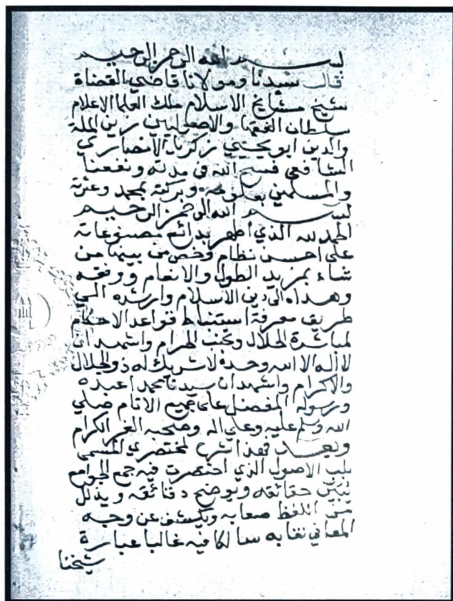 بسم الله الرحمن الرحيم
قال سيدنا ومولانا قاضي القضاة
شيخ مشايخ الاسلام ملك العلما الاعلام
سلطان الفقها والاصوليين زين الملة
والدين ابو يحيي زكريا الانصاري
الشافعي فسح الله في مدته ونفعنا
والمسلمين بعلومه وبركته بمحمد وعترته
بسم الله الرحمن الرحيم
الحمد لله الذي اظهر بدائع مصنوعاته
على احسن نظام وخص من بينها من
شاء بمزيد الطول والانعام ووفقه
وهداه الى دين الاسلام وارشده الي
طريق معرفة استنباط قواعد الاحكام
لمباشرة الحلال وتجنب الحرام واشهد ان
لا اله الا الله وحده لا شريك له ذو الجلال
والاكرام واشهد ان سيدنا محمدا عبده
ورسوله المفضل على جميع الانام صلي
الله وسلم عليه وعلي اله وصحبه الغر الكرام
وبعد فهذا شرح لمختصري المسمي
بلب الاصول الذي اختصرت فيه جمع الجوامع
يبين حقائقه ويوضح دقائقه ويذلل
من اللفظ صعابه ويكشف عن وجه
المعاني نقابه سالكا فيه غالبا عبارة
شيخنا